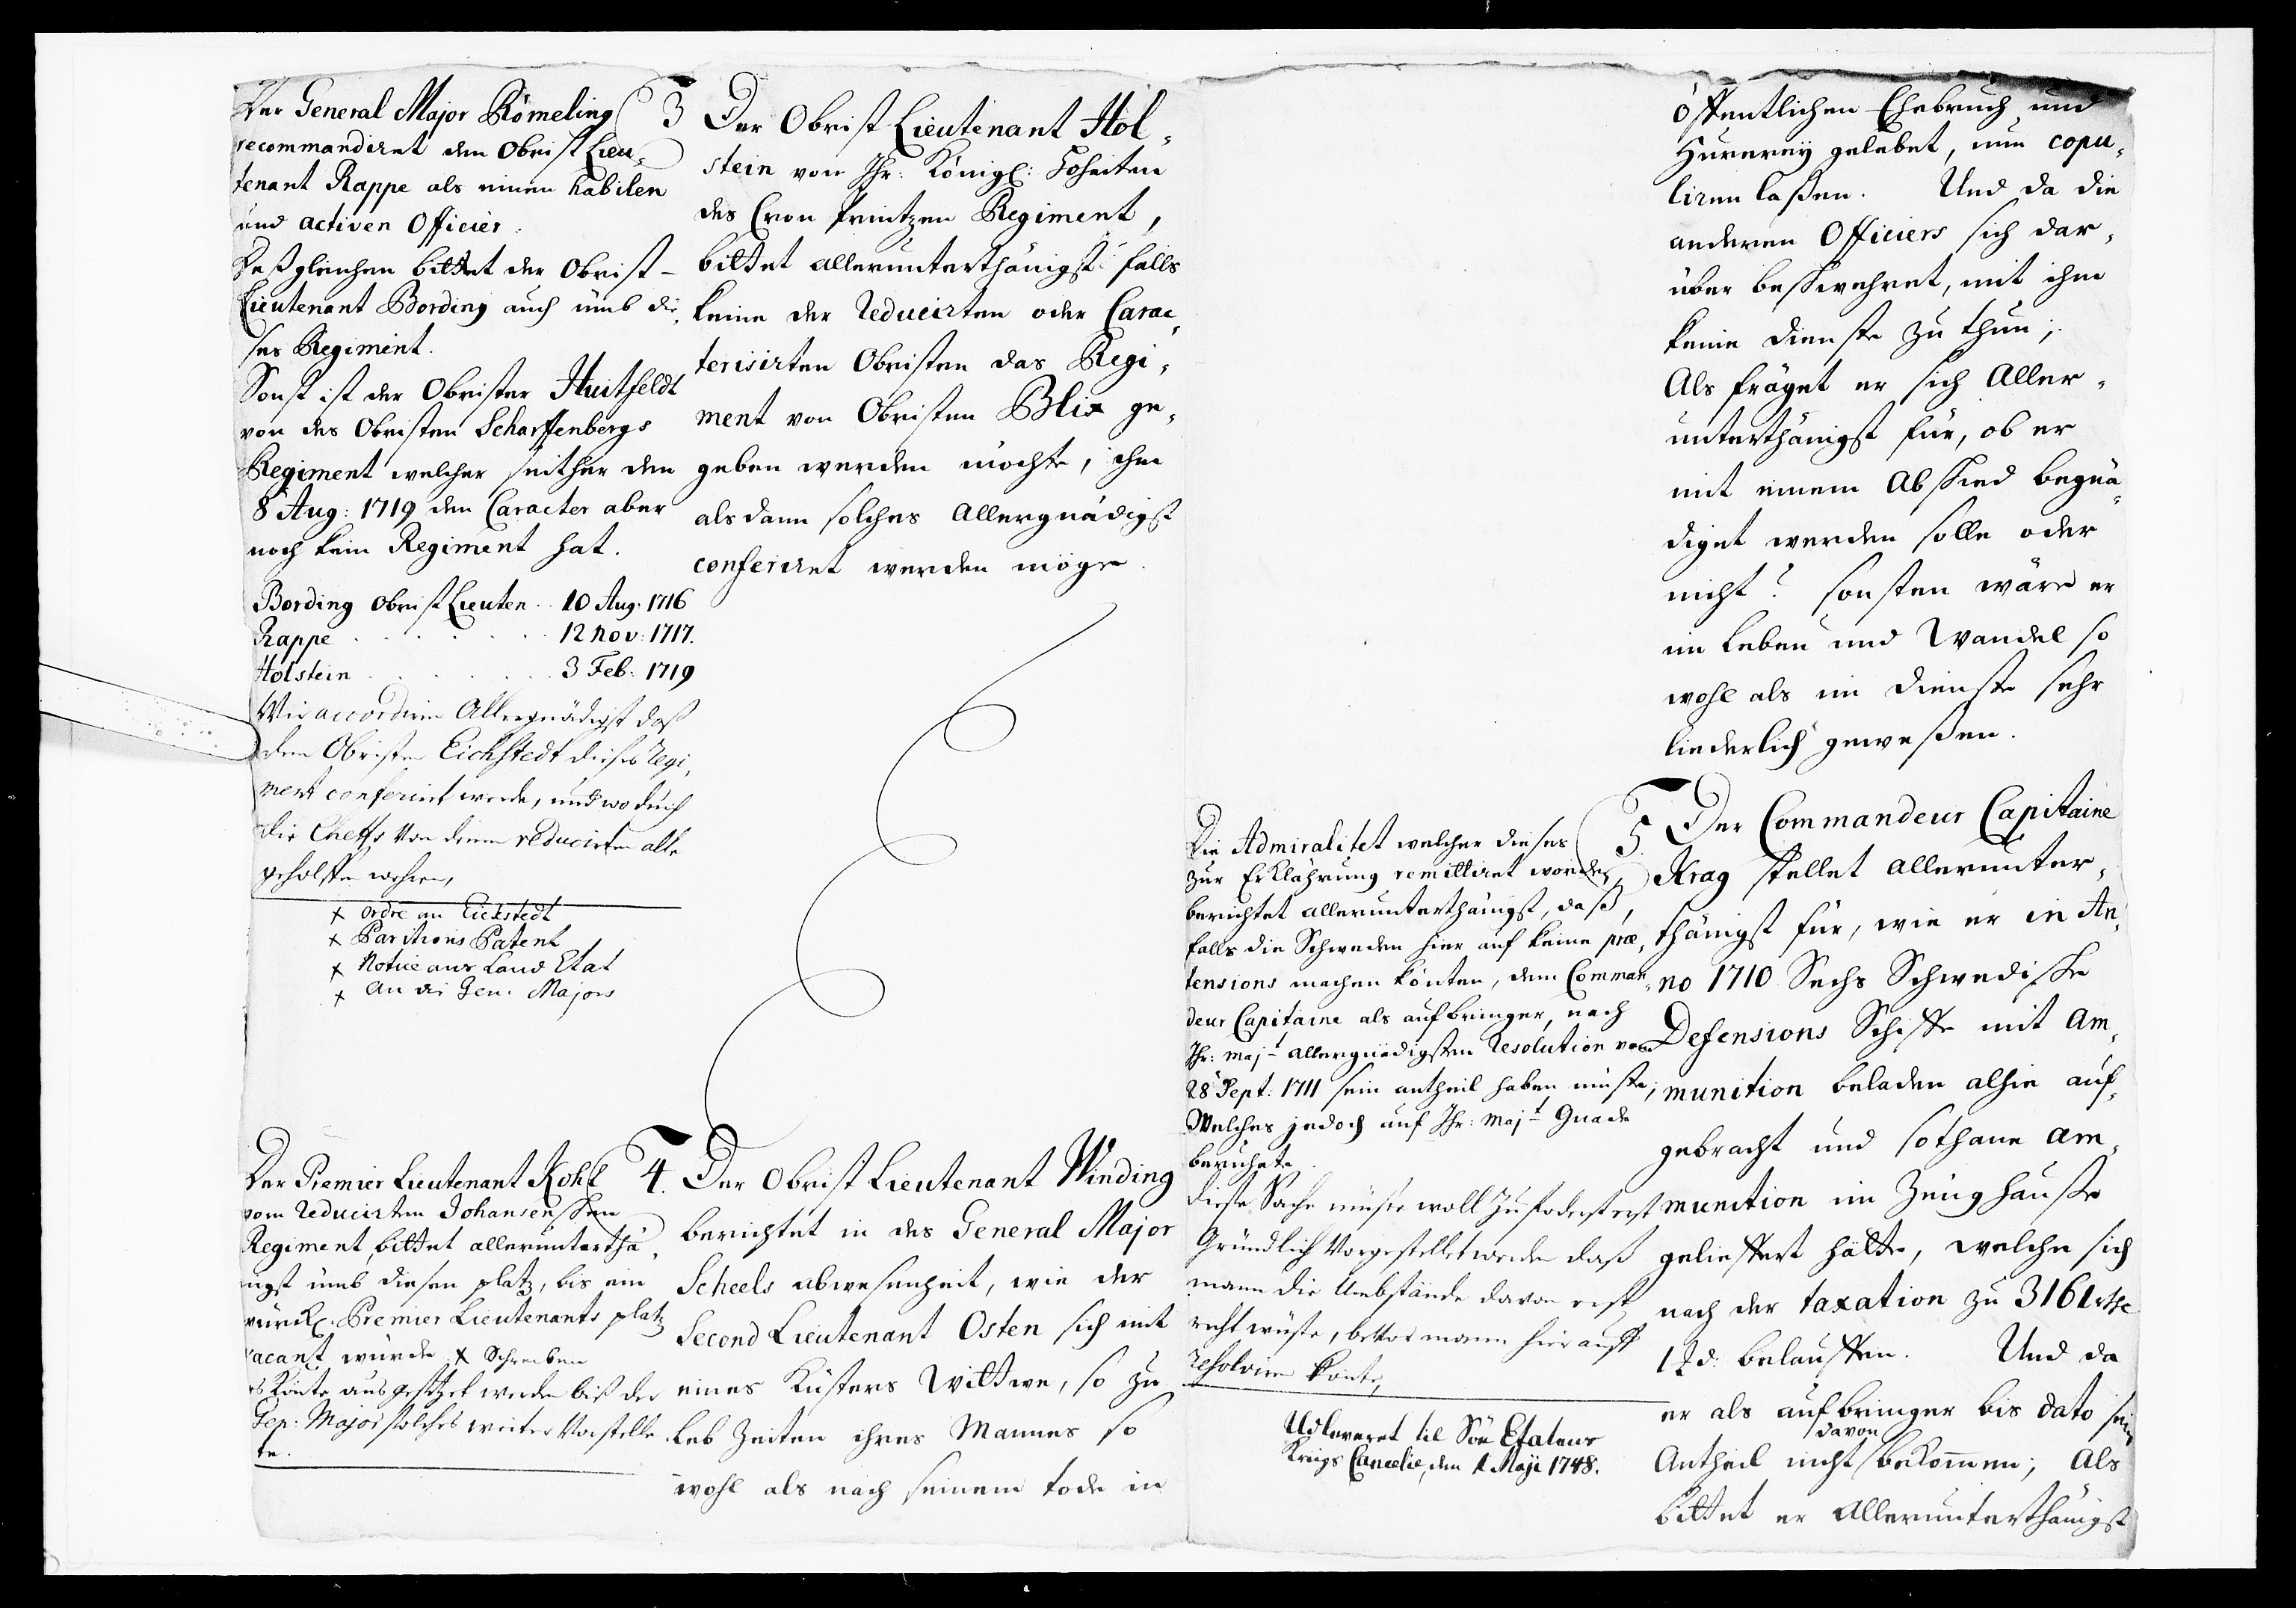 Der General Major Römeling
recommandiret den Obrist Lieu-
tenant Rappe als einen habilen
und activen Officier.
Deßgleichen bittet der Obrist-
Lieutenant Bording auch umb die-
ses Regiment.
Sonst ist der Obrister Huitfeldt
von des Obristen Scharffenbergs
Regiment welcher seither den
8 Aug: 1719 den Caracter aber
noch kein Regiment hat.
Bording Obrist Lieuten. . 10 Aug. 1716
Rappe . . . . . . 12 Nov: 1717.
Holstein . . . . . . 3 Feb: 1719
Wir accordiren Allergnädigst daß
dem Obristen Eichstedt dieses Regi-
ment conferirt werde, und wodurch
die Cheffs von denen reducirten alle
geholffen wehren,
x Ordre an Eickstedt
x Paritions Patent
x Notice aus Land Etat
x an die Gen. Majors
3 Der Obrist Lieutenant Hol-
stein von Ihr: Königl: Hoheiten
des Cron Printzen Regiment,
bittet allerunterthänigst falls
keine der Reducirten oder Carac-
terisirten Obristen das Regi-
ment von Obristen Blix ge-
geben werden möchte, ihm
als dann solches Allergnädigst
conferiret werden möge.
Der Premier Lieutenant Kohl
vom Reducirten Johansenschen
Regiment, bittet allerunterthä-
nigst umb diesen platz, bis ein
würckl. Premier Lieutenants platz
vacant würde. x Schreiben
es könte ausgesetzet werden biß der
Gen: Major solches weiter vorstelle
te.
4. Der Obrist Lieutenant Winding
berichtet in des General Major
Scheels abwesenheit, wie der
Second Lieutenant Osten sich mit
eines Küsters Wittwe, so zu
leb Zeiten ihres Mannes so
wohl als nach seinem tode in
öffentlichen Ehebruch und
Hurerey gelebet, nun copu-
liren laßen. Und da die
anderen Officiers sich dar-
über beschwehret, mit ihm
keine dienste zu thun;
Als fräget er sich Aller-
unterthänigst für, ob er
mit einem Abschied begnä-
diget werden solle oder
nicht? sonsten wäre er
im Leben und Wandel so
wohl als im dienste sehr
liederlich geweßen.
Die Admiralitet welcher dieses
zur Erklährung remittiret worden,
berichtet allerunterthänigst, daß,
falls die Schweden hier auf keine præ-
tensions machen könten, dem Comman-
deur Capitaine als aufbringer, nach
Ihr: Majt allergnädigsten Resolution vom
28 Sept: 1711 sein antheil haben müste;
Welches jedoch auf Ihr: Majt Gnade
beruhete.
diese Sache müste woll zuforderst erst
Gründlich vorgestellet werden daß
mann die Umbstände davon erst
recht wüste, bevor mann hierauff
resolviren könte,
Udleveret til Söe Etatens
Krigs Cancelie, den 1 Maji 1748.
5. Der Commandeur Capitaine
Krag stellet allerunter-
thänigst für, wie er in An-
no 1710 Sechs Schwedische
Defensions Schiffe mit Am-
munition beladen alhie auf-
gebracht und sothane Am-
munition im Zeughauße
geliefert hätte, welche sich
nach der taxation zu 3161 rthr
1 ß d: belauffen. Und da
er als aufbringer bis dato sein
davon
Antheil nicht bekommen; Als
bittet er Allerunterthänigst